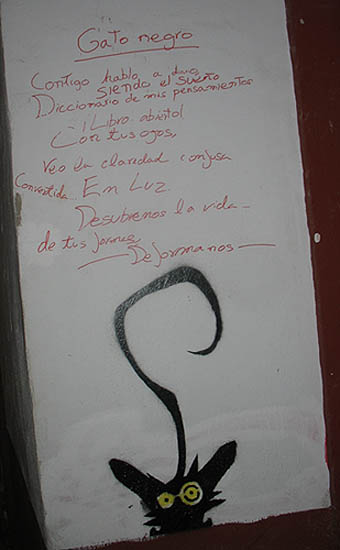 Gato negro
Contigo hablo a
siendo el sueño
Diccionario de mis pensamientos
¡Libro abierto!
Con tus ogos,
veo la claridad confusa
Convertida En Luz.
Desubrenos la vida
de tus formas
Deformanos